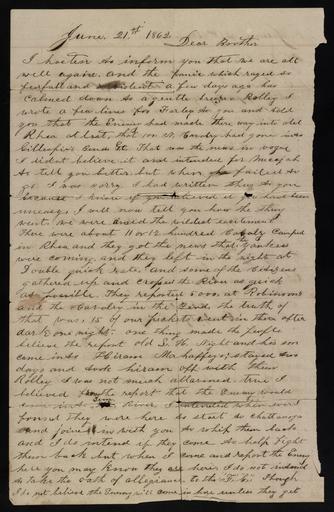 June, 21st 1862
Dear Brother
I hasten to inform you that we are all
well again. and the panic which raged so
fearfull and violent a few days ago has
calmed down to a gentle breeze Rolley I
wrote a few lines for to you and told
you that the Enemy had made there way into old
Rhea at last, that on N. had gone into
Gillespies Bend Et. That was the news in vogue
I didnt believe it and intended for
to tell you better but when he failed to
go. I was sorry I had written thus to you
because I know if you believed it you have been
uneasy. I will now tell you how the thing
went we were amid the wildest excitement
There were about 11 or 12 hundred Cavalry camped
in Rhea and they got the news that the yankees
were coming, and they left in the night at
double quick rate. and some of the Citizens
gathered up and crossed the River as quick
as possible. They reported 6000. at Robinsons
and the Cavalry in the the truth of
that was, 15 of our pickets went in there after
dark one night. one thing made the people
believe the report old S. H. and his son
came into Hiram Mahaffeys; stayed two
days and took hiram off with them
Rolley I was not much allarmed. true I
believed from the report that the Enemy would
River I intended when I
found They were here to start to chattanooga
and join in with you to whip them back
and I do intend if they come to help fight
them back but when I come and report the Enemy
here you may know they are here, I do not intend
to take the oath of allegiance to the Though
I do not believe the Enemy will come in here unless they get